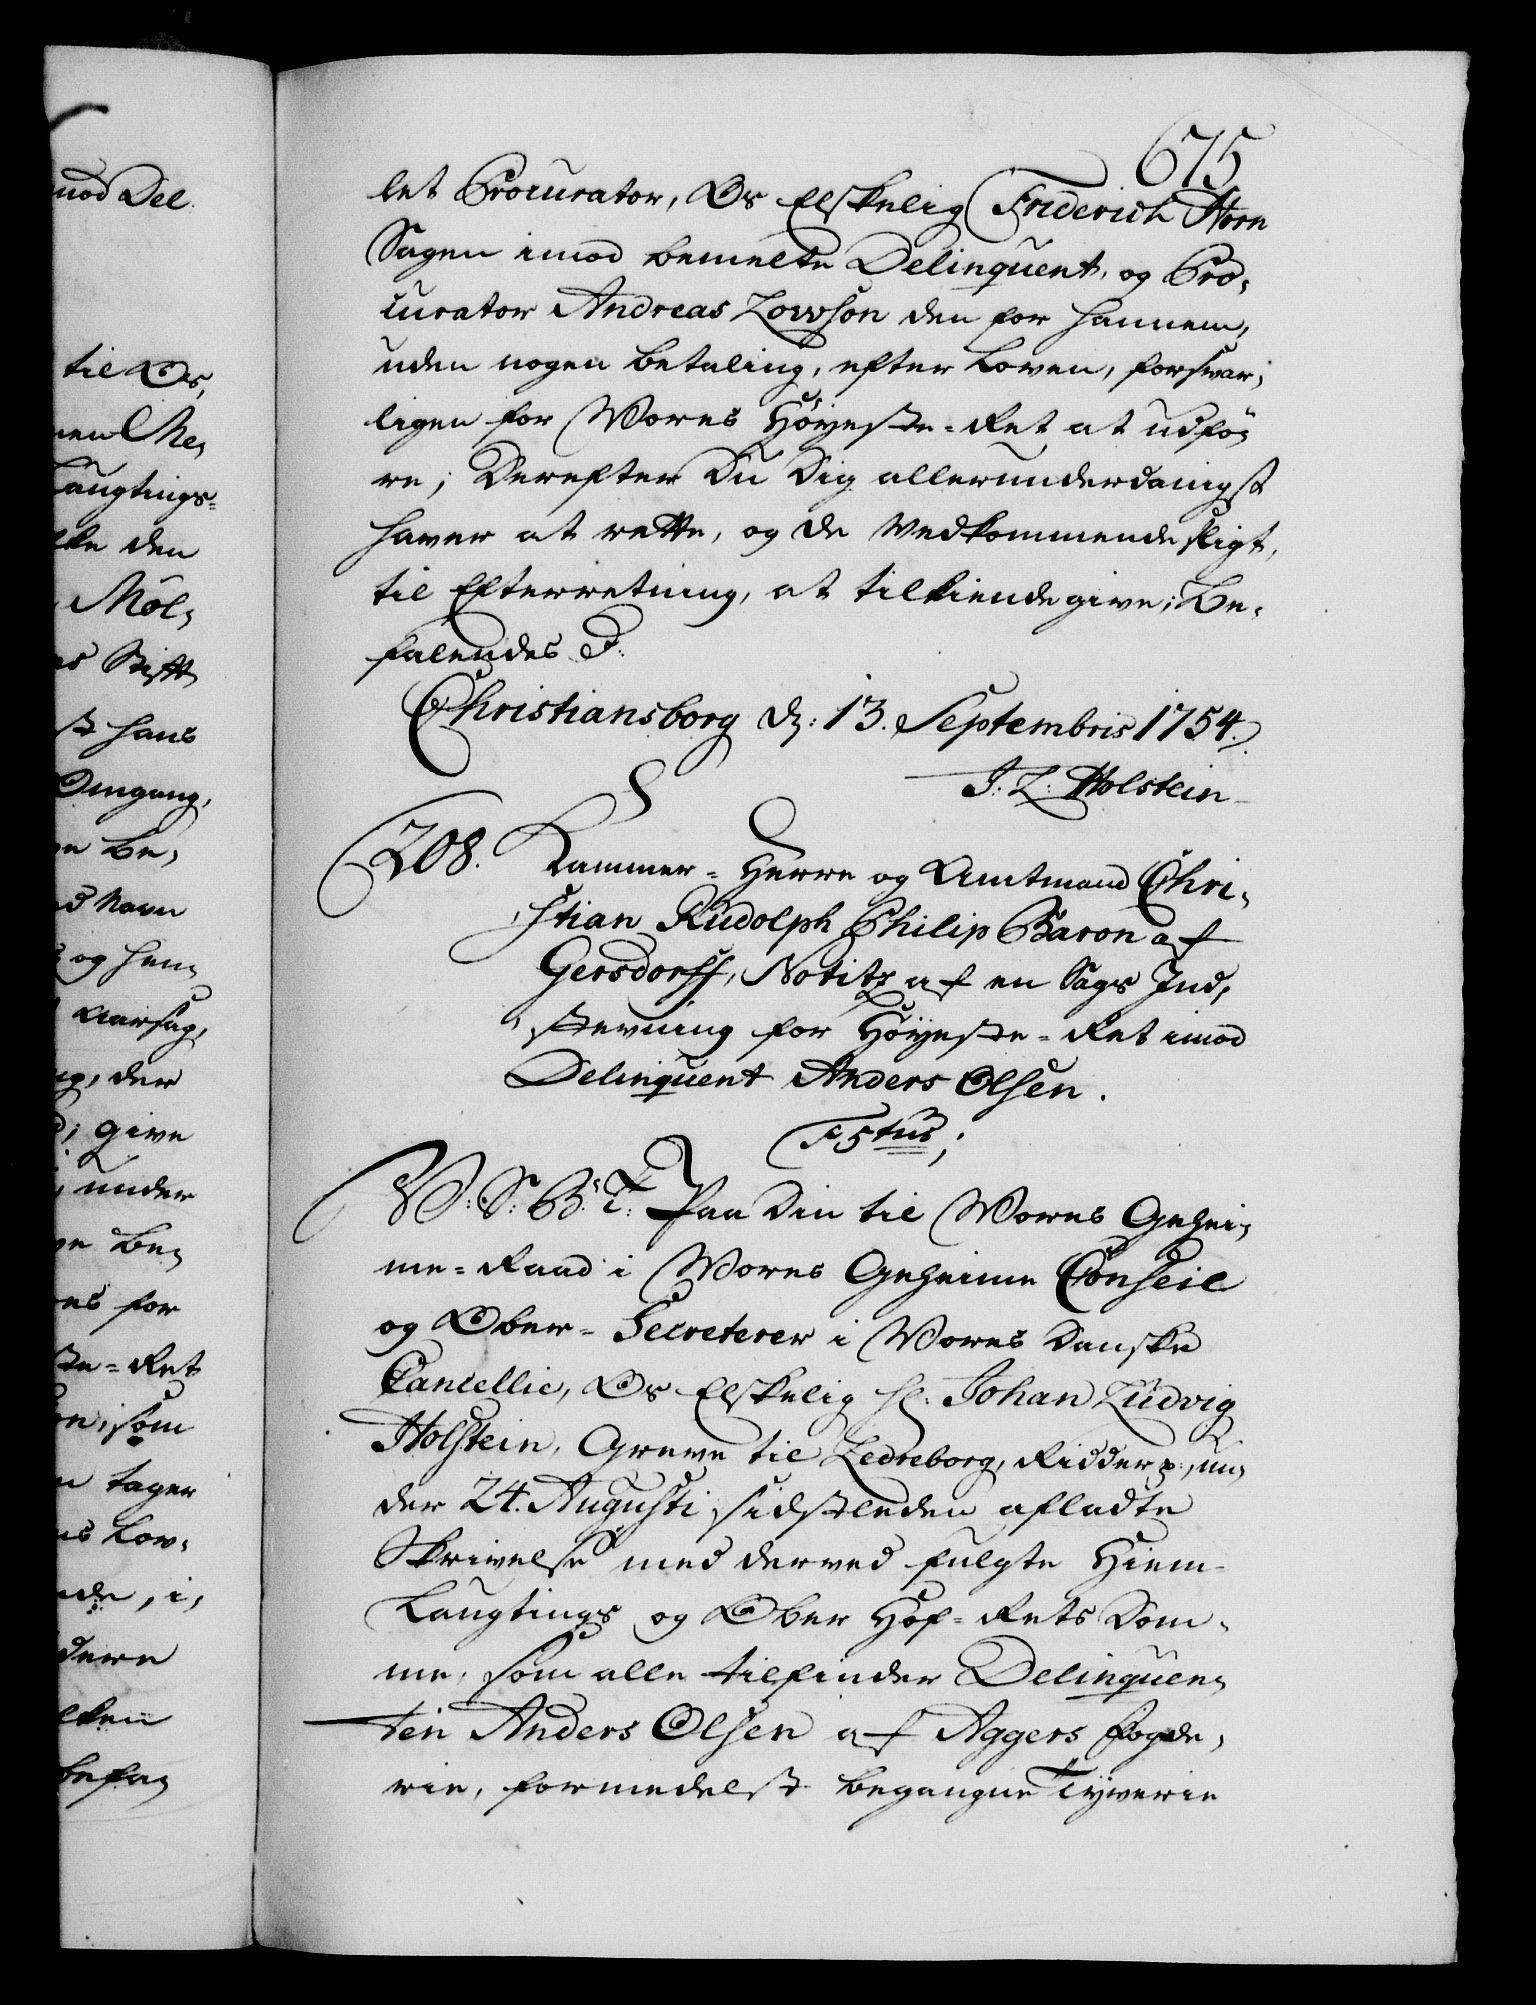 675
let Procurator, Os Elskelig Friderich Horn
Sagen imod bemelte Delinquent, og Pro-
curator Andreas Lowson den for hannem,
uden nogen betaling, efter Loven, forsvar-
ligen for Vores Höyeste-Ret at udfö-
re; Derefter Du Dig allerunderdanigst
haver at rette, og de Vedkommende sligt,
til Efterretning, at tilkiende give; Be-
falendes D:
Christiansborg d: 13. Septembris 1754.
J: L: Holstein
208. Kammer-Herre og Amtmand Chri-
stian Rudolph Philip Baron af
Gersdorff, Notitz af en Sags Ind-
stevning for Höyeste-Ret imod
Delinquent Anders Olsen.
F5tus;
W: S: B: T: Paa Din til Vores Gehei-
me-Raad i Vores Geheime Conseil
og Ober-Secreterer i Vores Danske
Cancellie, Os Elskelig H: Johan Ludvig
Holstein, Greve til Ledreborg, Ridder p:, un-
der 24. Augusti sidstleden afladte
Skrivelse med derved fulgte Hiem-
Laugtings og Ober Hof-Rets Dom-
me, som alle tilfinder Delinquen-
ten Anders Olsen af Aggers Fogde-
rie, formedelst begangne Tyverie
mod Del
til Os,
nen Me-
Laugtings-
lke den
Möl-
Stift
st hans
Omgang,
be-
Navn
og hen-
Aarsag,
der
give
under
be-
for
ste-Ret
som
tager
Lov-
nde, i-
dere
lken
befa-